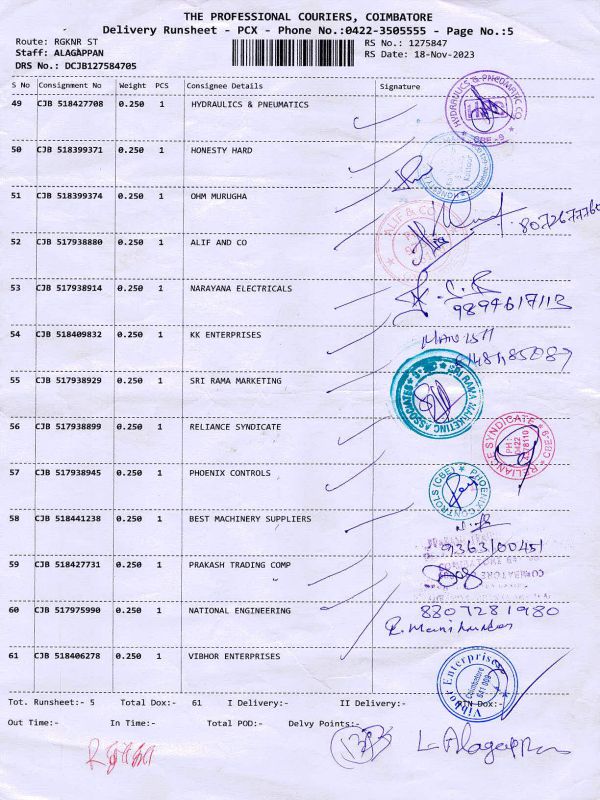 THE PROFESSIONAL COURIERS, COIMBATORE
Delivery Runsheet - PCX - Phone No.:0422-3505555 - Page No.:5
Route: RGKNR ST RS No.: 1275847
Staff: ALAGAPPAN RS Date: 18-Nov-2023
DRS No.: DCJB127584705
S No Consignment No Weight PCS Consignee Details Signature
49 CJB 518427708 0.250 1 HYDRAULICS & PNEUMATICS
HYDRAULICS & PNEUMATIC CO
CBE-9
50 CJB 518399371 0.250 1 HONESTY HARD
51 CJB 518399374 0.250 1 OHM MURUGHA
ALIF & CO
52 CJB 517938880 0.250 1 ALIF AND CO
53 CJB 517938914 0.250 1 NARAYANA ELECTRICALS
9894617113
54 CJB 518409832 0.250 1 KK ENTERPRISES
55 CJB 517938929 0.250 1 SRI RAMA MARKETING
SRI RAMA MARKETING ASSOCIATES
56 CJB 517938899 0.250 1 RELIANCE SYNDICATE
RELIANCE SYNDICATE CBE-9
57 CJB 517938945 0.250 1 PHOENIX CONTROLS
PHOENIX CONTROLS (CBE)
58 CJB 518441238 0.250 1 BEST MACHINERY SUPPLIERS
9363100451
59 CJB 518427731 0.250 1 PRAKASH TRADING COMP
60 CJB 517975990 0.250 1 NATIONAL ENGINEERING
8807281980
61 CJB 518406278 0.250 1 VIBHOR ENTERPRISES
Vibhor Enterprises
Coimbatore
641 009
Tot. Runsheet:- 5 Total Dox:- 61 I Delivery:- II Delivery:- RTN Dox:-
Out Time:- In Time:- Total POD:- Delvy Points:-
L. Alagappan